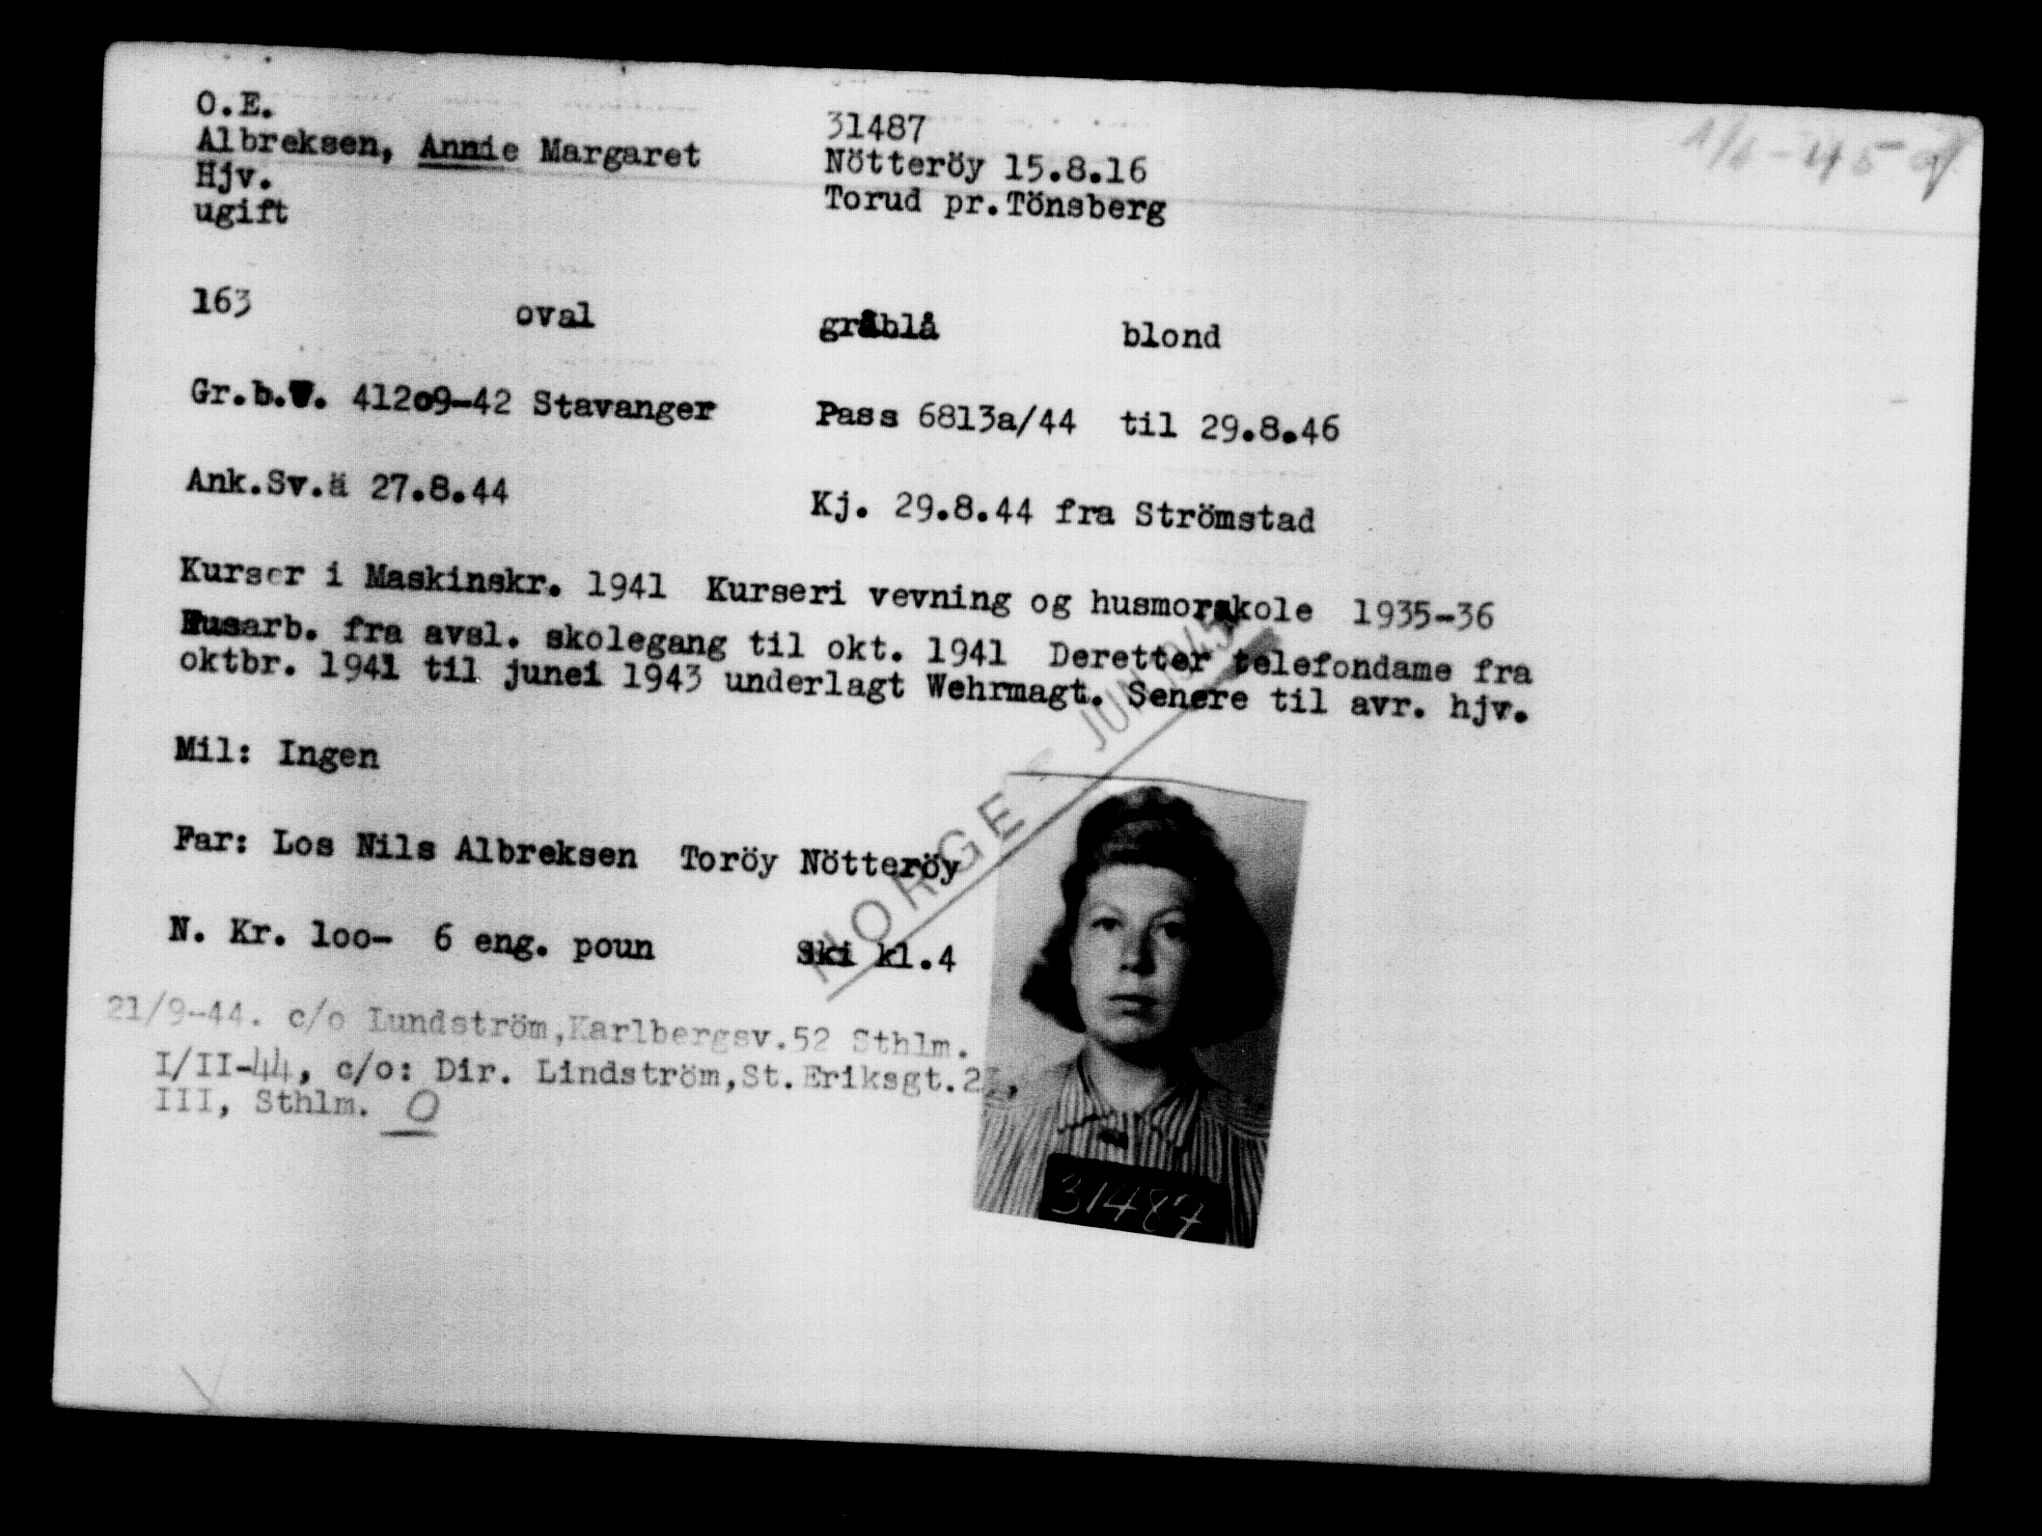 O.E.
31487
1/6-45
Albreksen, Annie Margaret
Nötteröy 15.8.16
Hjv.
Torud pr.Tönsberg
ugift
163 oval gråblå blond
Gr.b.V. 41209-42 Stavanger Pass 6813a/44 til 29.8.46
Ank.Sv.ä 27.8.44 Kj. 29.8.44 fra Strömstad
Kurser i Maskinskr. 1941 Kurseri vevning og husmorskole 1935-36
Husarb. fra avsl. skolegang til okt. 1941 Deretter telefondame fra
oktbr. 1941 til junei 1943 underlagt Wehrmagt. Senere til avr. hjv.
Mil: Ingen
NORGE JUN 1945
Far: Los Nils Albreksen Toröy Nötteröy
N. Kr. loo- 6 eng. poun Ski kl.4
21/9-44. c/o Lundström,Karlbergsv.52 Sthlm.
I/II-44, c/o: Dir. Lindström,St.Eriksgt.
III, Sthlm. O
31487